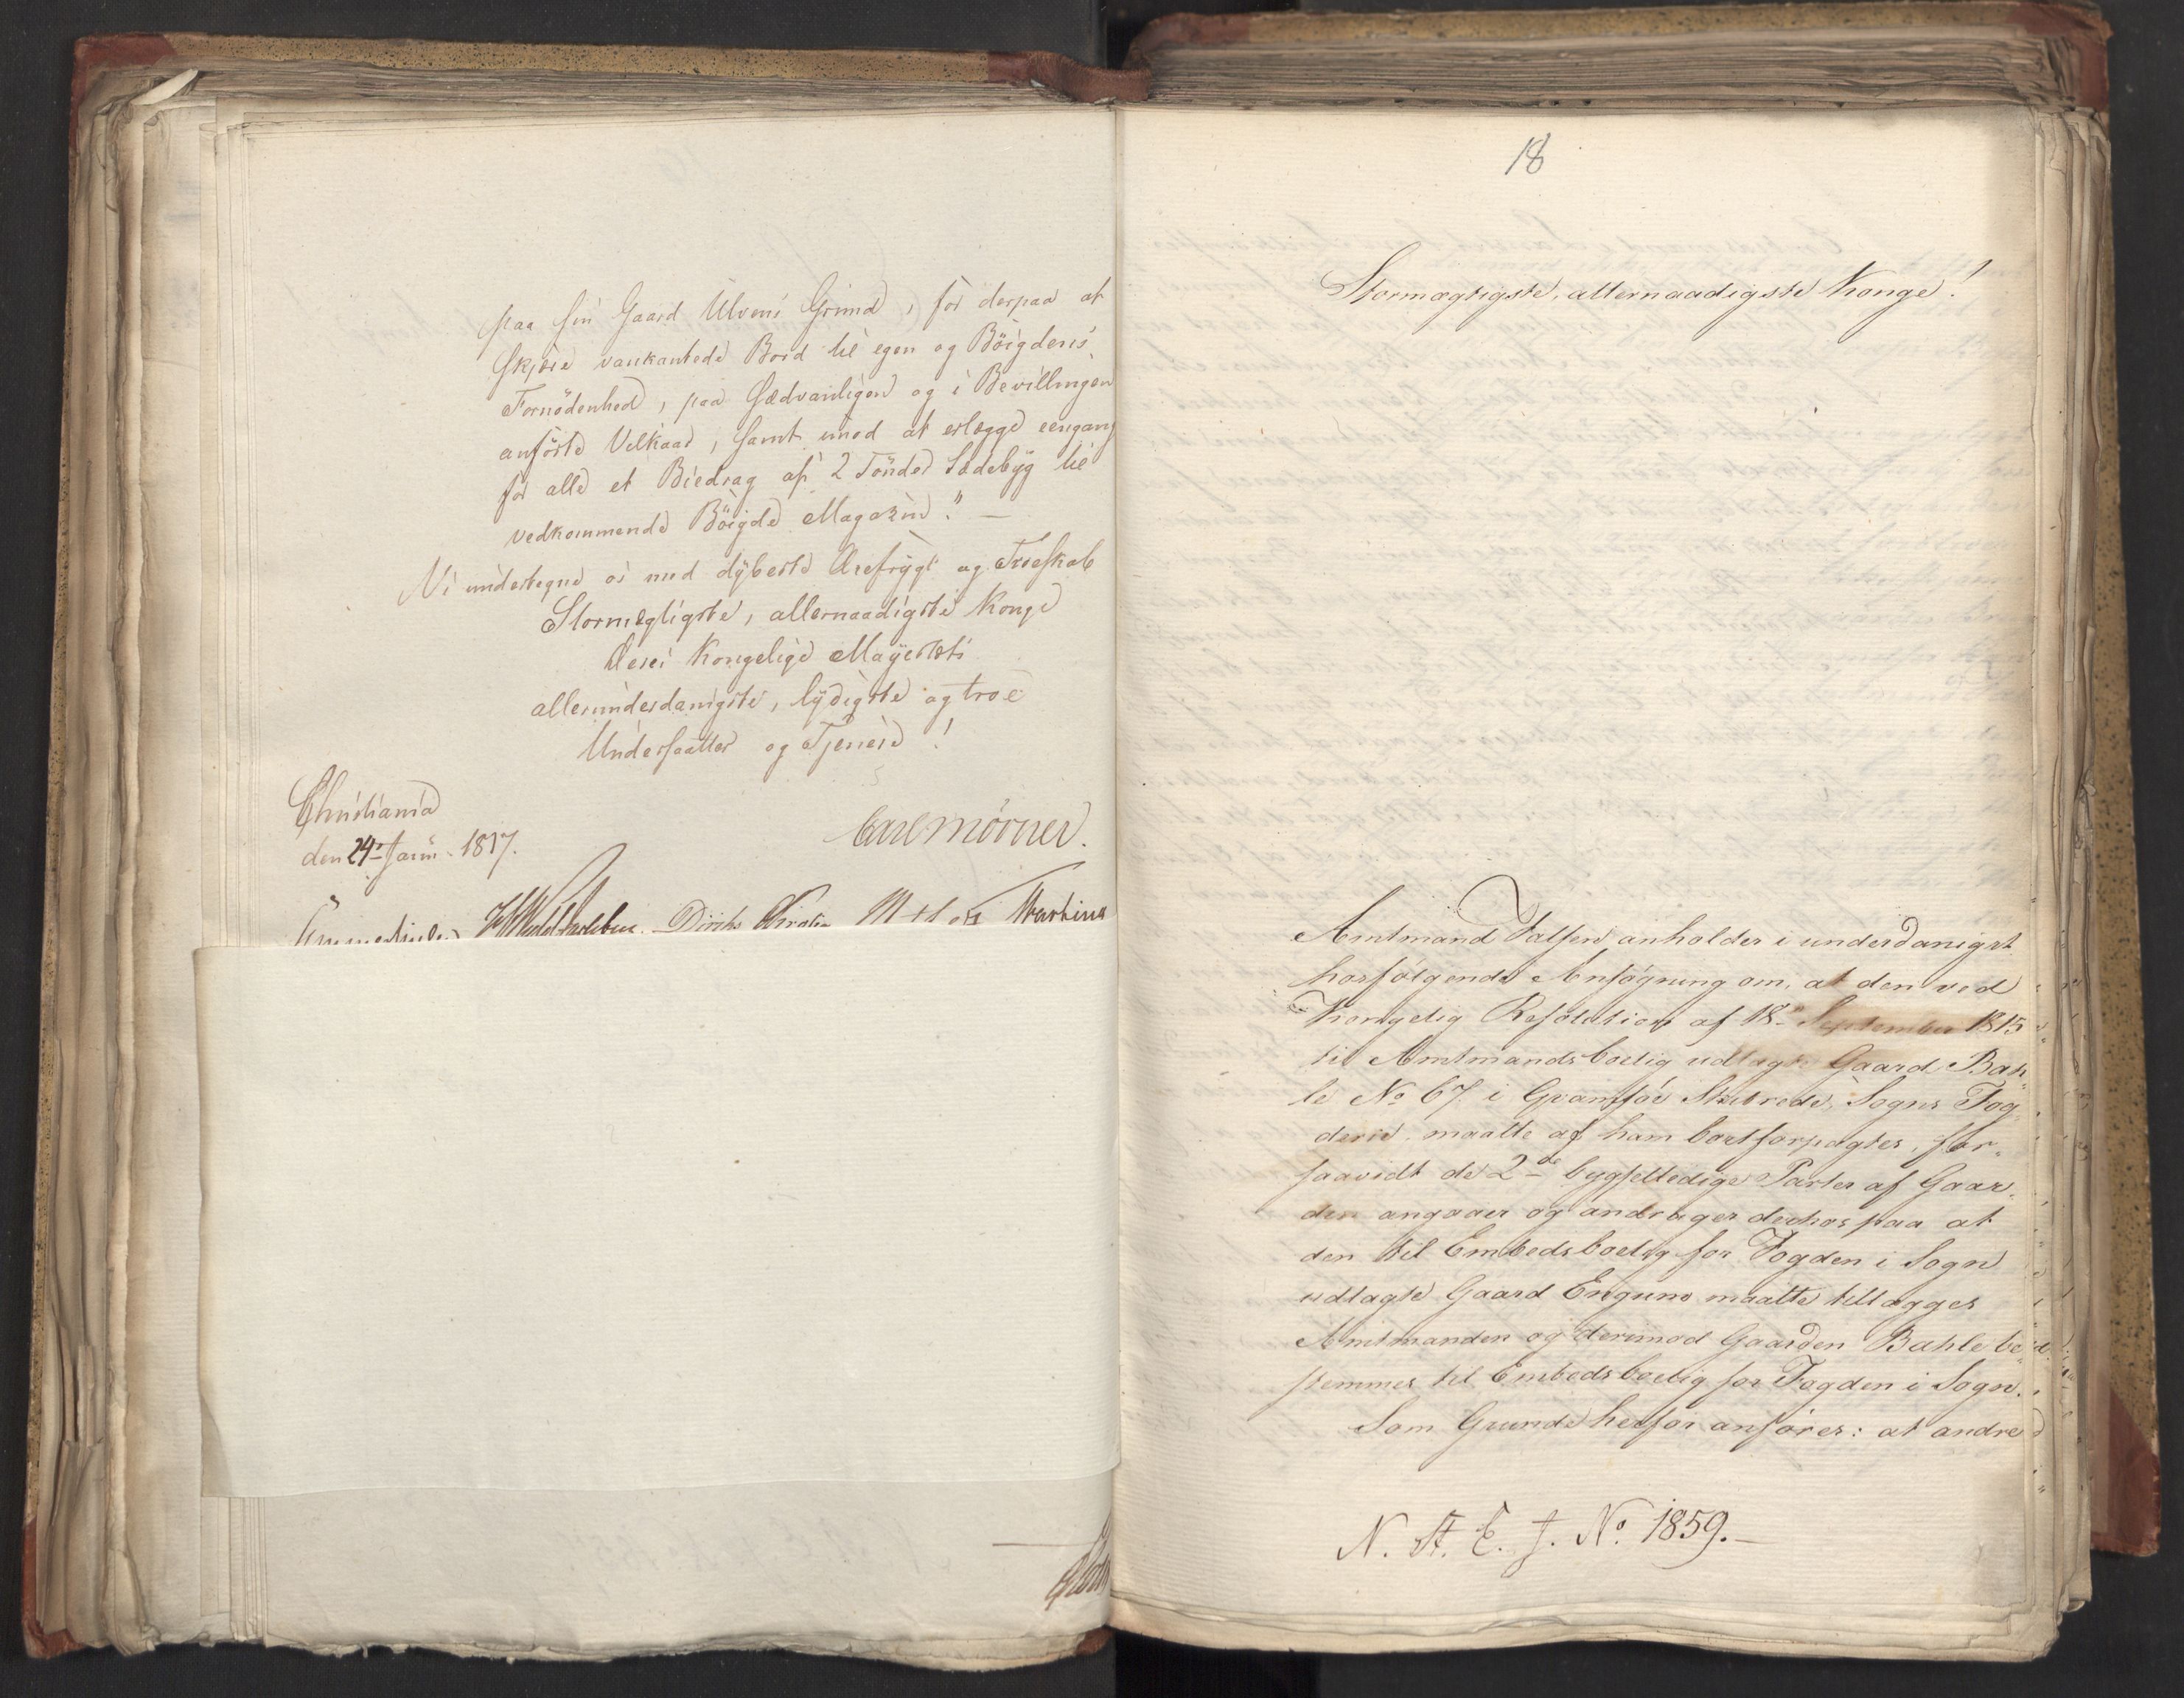 paa sin Gaard Ulvens Grund, for derpaa at
skjære vankantede Bord til egen og Böigdens
Fornödenhed, paa sædvanligen og i Bevillingen
anförte Vilkaar, samt imod at erlægge eengang
for alle et Biedrag af 2 Tönder Sædebyg til
vedkommende Böigde Magazin." —
Vi undertegne os med dybeste Ærefrygt og Troeskab
Stormægtigste, allernaadigste Konge
Deres Kongelige Majestæts
allerunderdanigste, lydigste og troe
Undersaatter og Tjenere!
Christiania
den 24de Janu. 1817.
Carl Mörner.
Sommerhielm Diriks Krohn Motzfeldt
18
Stormægtigste, allernaadigste Konge!
Amtmand Falsen anholder i underdanigst
hosfølgende Ansøgning om, at den ved
Kongelig Resolution af 18de September 1815
til Amtmandsboelig udlagte Gaard Bah-
le No 67 i Skibrede, Sogns Fog-
derie, maatte af ham bortforpagtes, for-
saavidt de 2de bygselledige Parter af Gaar-
den angaaer og andrager derhos paa at
den til Embedsboelig for Fogden i Sogn
udlagte Gaard Engum maatte tillægges
Amtmanden og derimod Gaarden Bahle be-
stemmes til Embedsboelig for Fogden i Sogn.
Som Grunde herfor anføres: at andre
N. St. E. J. No. 1859.—